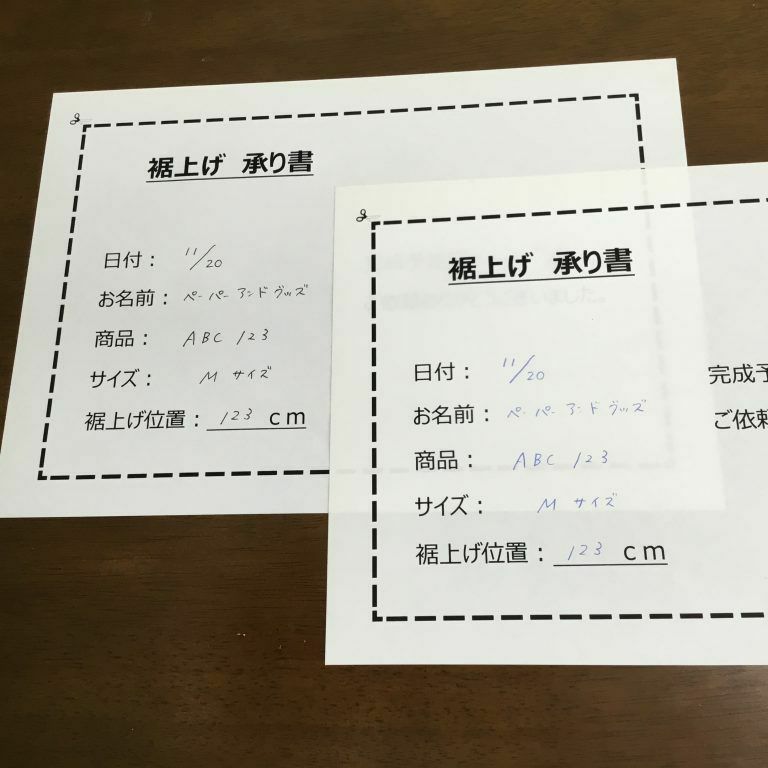 裾上げ 承り書
日付： 11/20
お名前： ペーパーアンドグッズ
商品： ABC 123
サイズ： M サイズ
裾上げ位置： 123 cm
裾上げ 承り書
日付： 11/20
お名前： ペーパーアンドグッズ
商品： ABC 123
サイズ： M サイズ
裾上げ位置： 123 cm
完成予
ご依頼